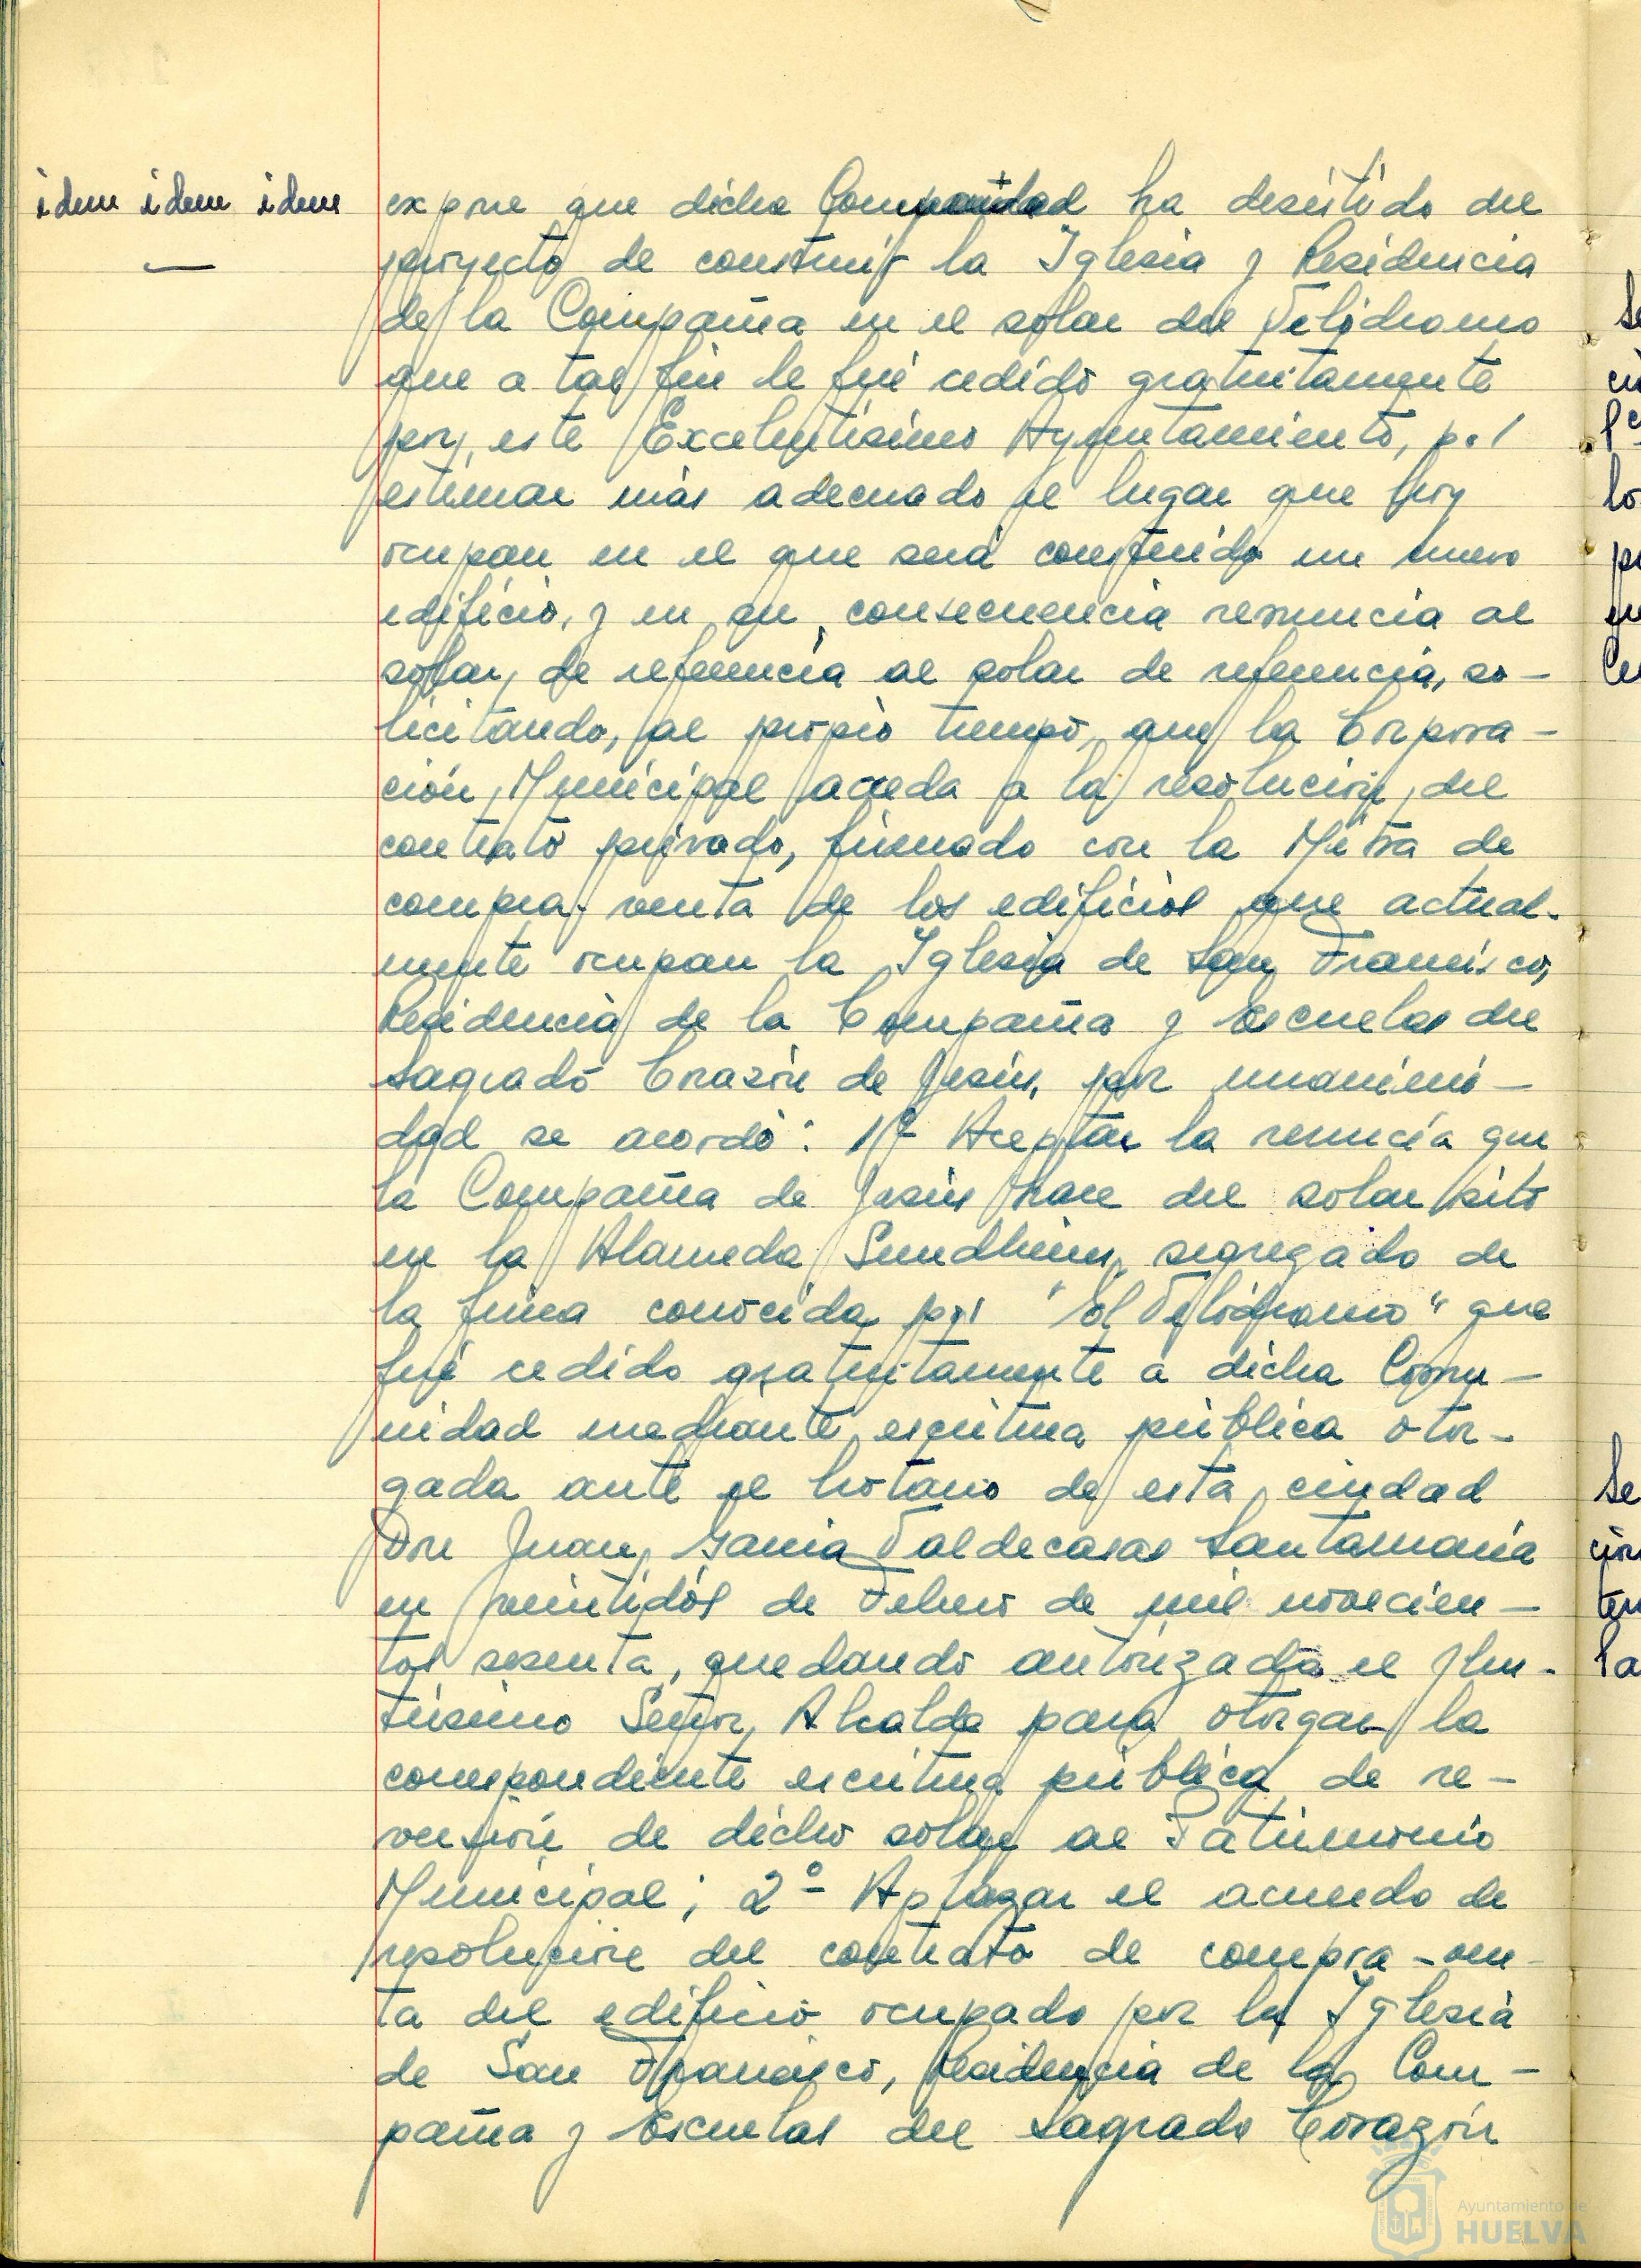 idem idem idem
expone que dicha Comunidad ha desistido del
proyecto de construir la Iglesia y Residencia
de la Compañia en el solar del Velódromo
que a tal fin le fué cedido gratuitamente
por este Excelentísimo Ayuntamiento, por
estimar más adecuado el lugar que hoy
ocupan en el que será construido un nuevo
edificio, y en su consecuencia renuncia al
solar de referencia al solar de referencia, so-
licitando, al propio tiempo, que la Corpora-
ción Municipal acceda a la resolución del
contrato privado, firmado con la Mitra de
compra-venta de los edificios que actual-
mente ocupan la Iglesia de San Francisco,
Residencia de la Compañia y Escuelas del
Sagrado Corazón de Jesús, por unanimi-
dad se acordó: 1º Aceptar la renuncia que
la Compañia de Jesús hace del solar sito
en la Alameda Sundheim, segregado de
la finca conocida por "El Velódromo" que
fué cedido gratuitamente a dicha Comu-
nidad mediante escritura pública otor-
gada ante el Notario de esta ciudad
Don Juan Garcia Valdecasas Santamaría
en veintidós de Febrero de mil novecien-
tos sesenta, quedando autorizado el Ilus-
trísimo Señor Alcalde para otorgar la
correspondiente escritura pública de re-
versión de dicho solar al Patrimonio
Municipal; 2º- Aplazar el acuerdo de
resolución del contrato de compra-ven-
ta del edificio ocupado por la Iglesia
de San Francisco, Residencia de la Com-
pañia y Escuelas del Sagrado Corazón
Ayuntamiento de
HUELVA